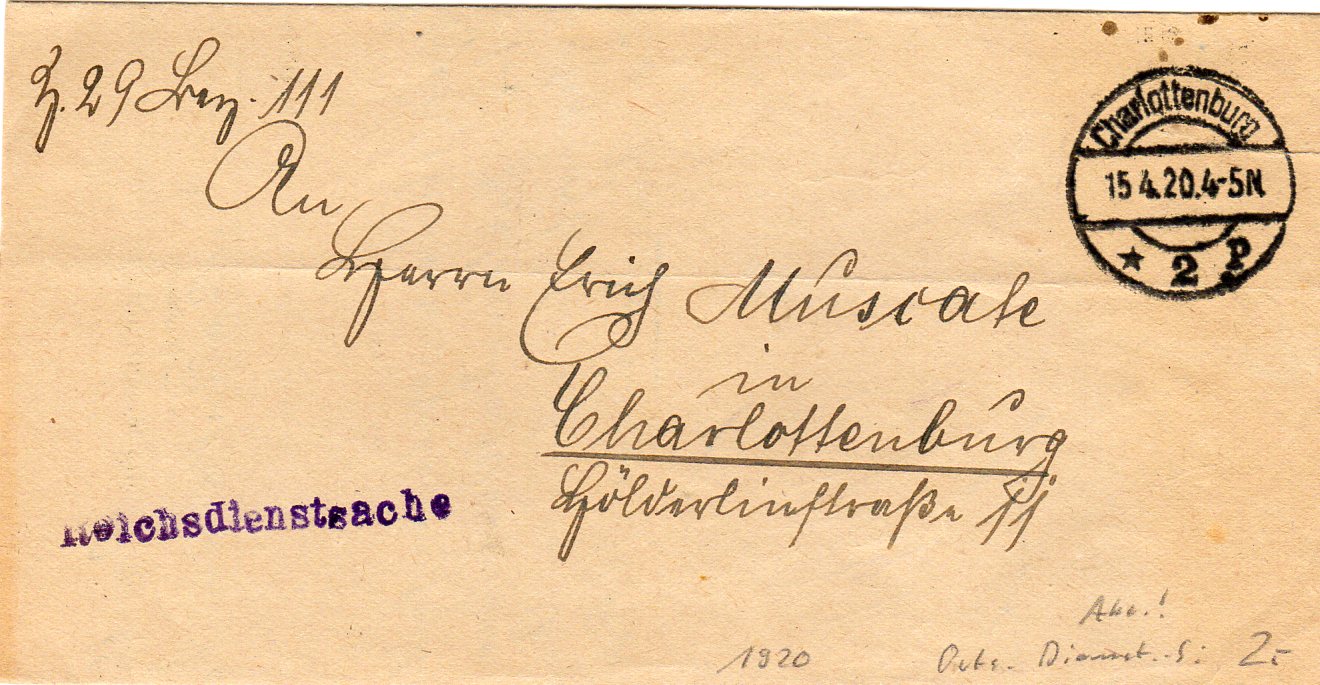 29 Bez. 111
An
Herrn Erich Muscate
in
Charlottenburg
Hölderlinstraße 11
Reichsdienstsache
Charlottenburg
15 4.20.4-5N
★ 2 P
1920
Dienst.-S: 2-